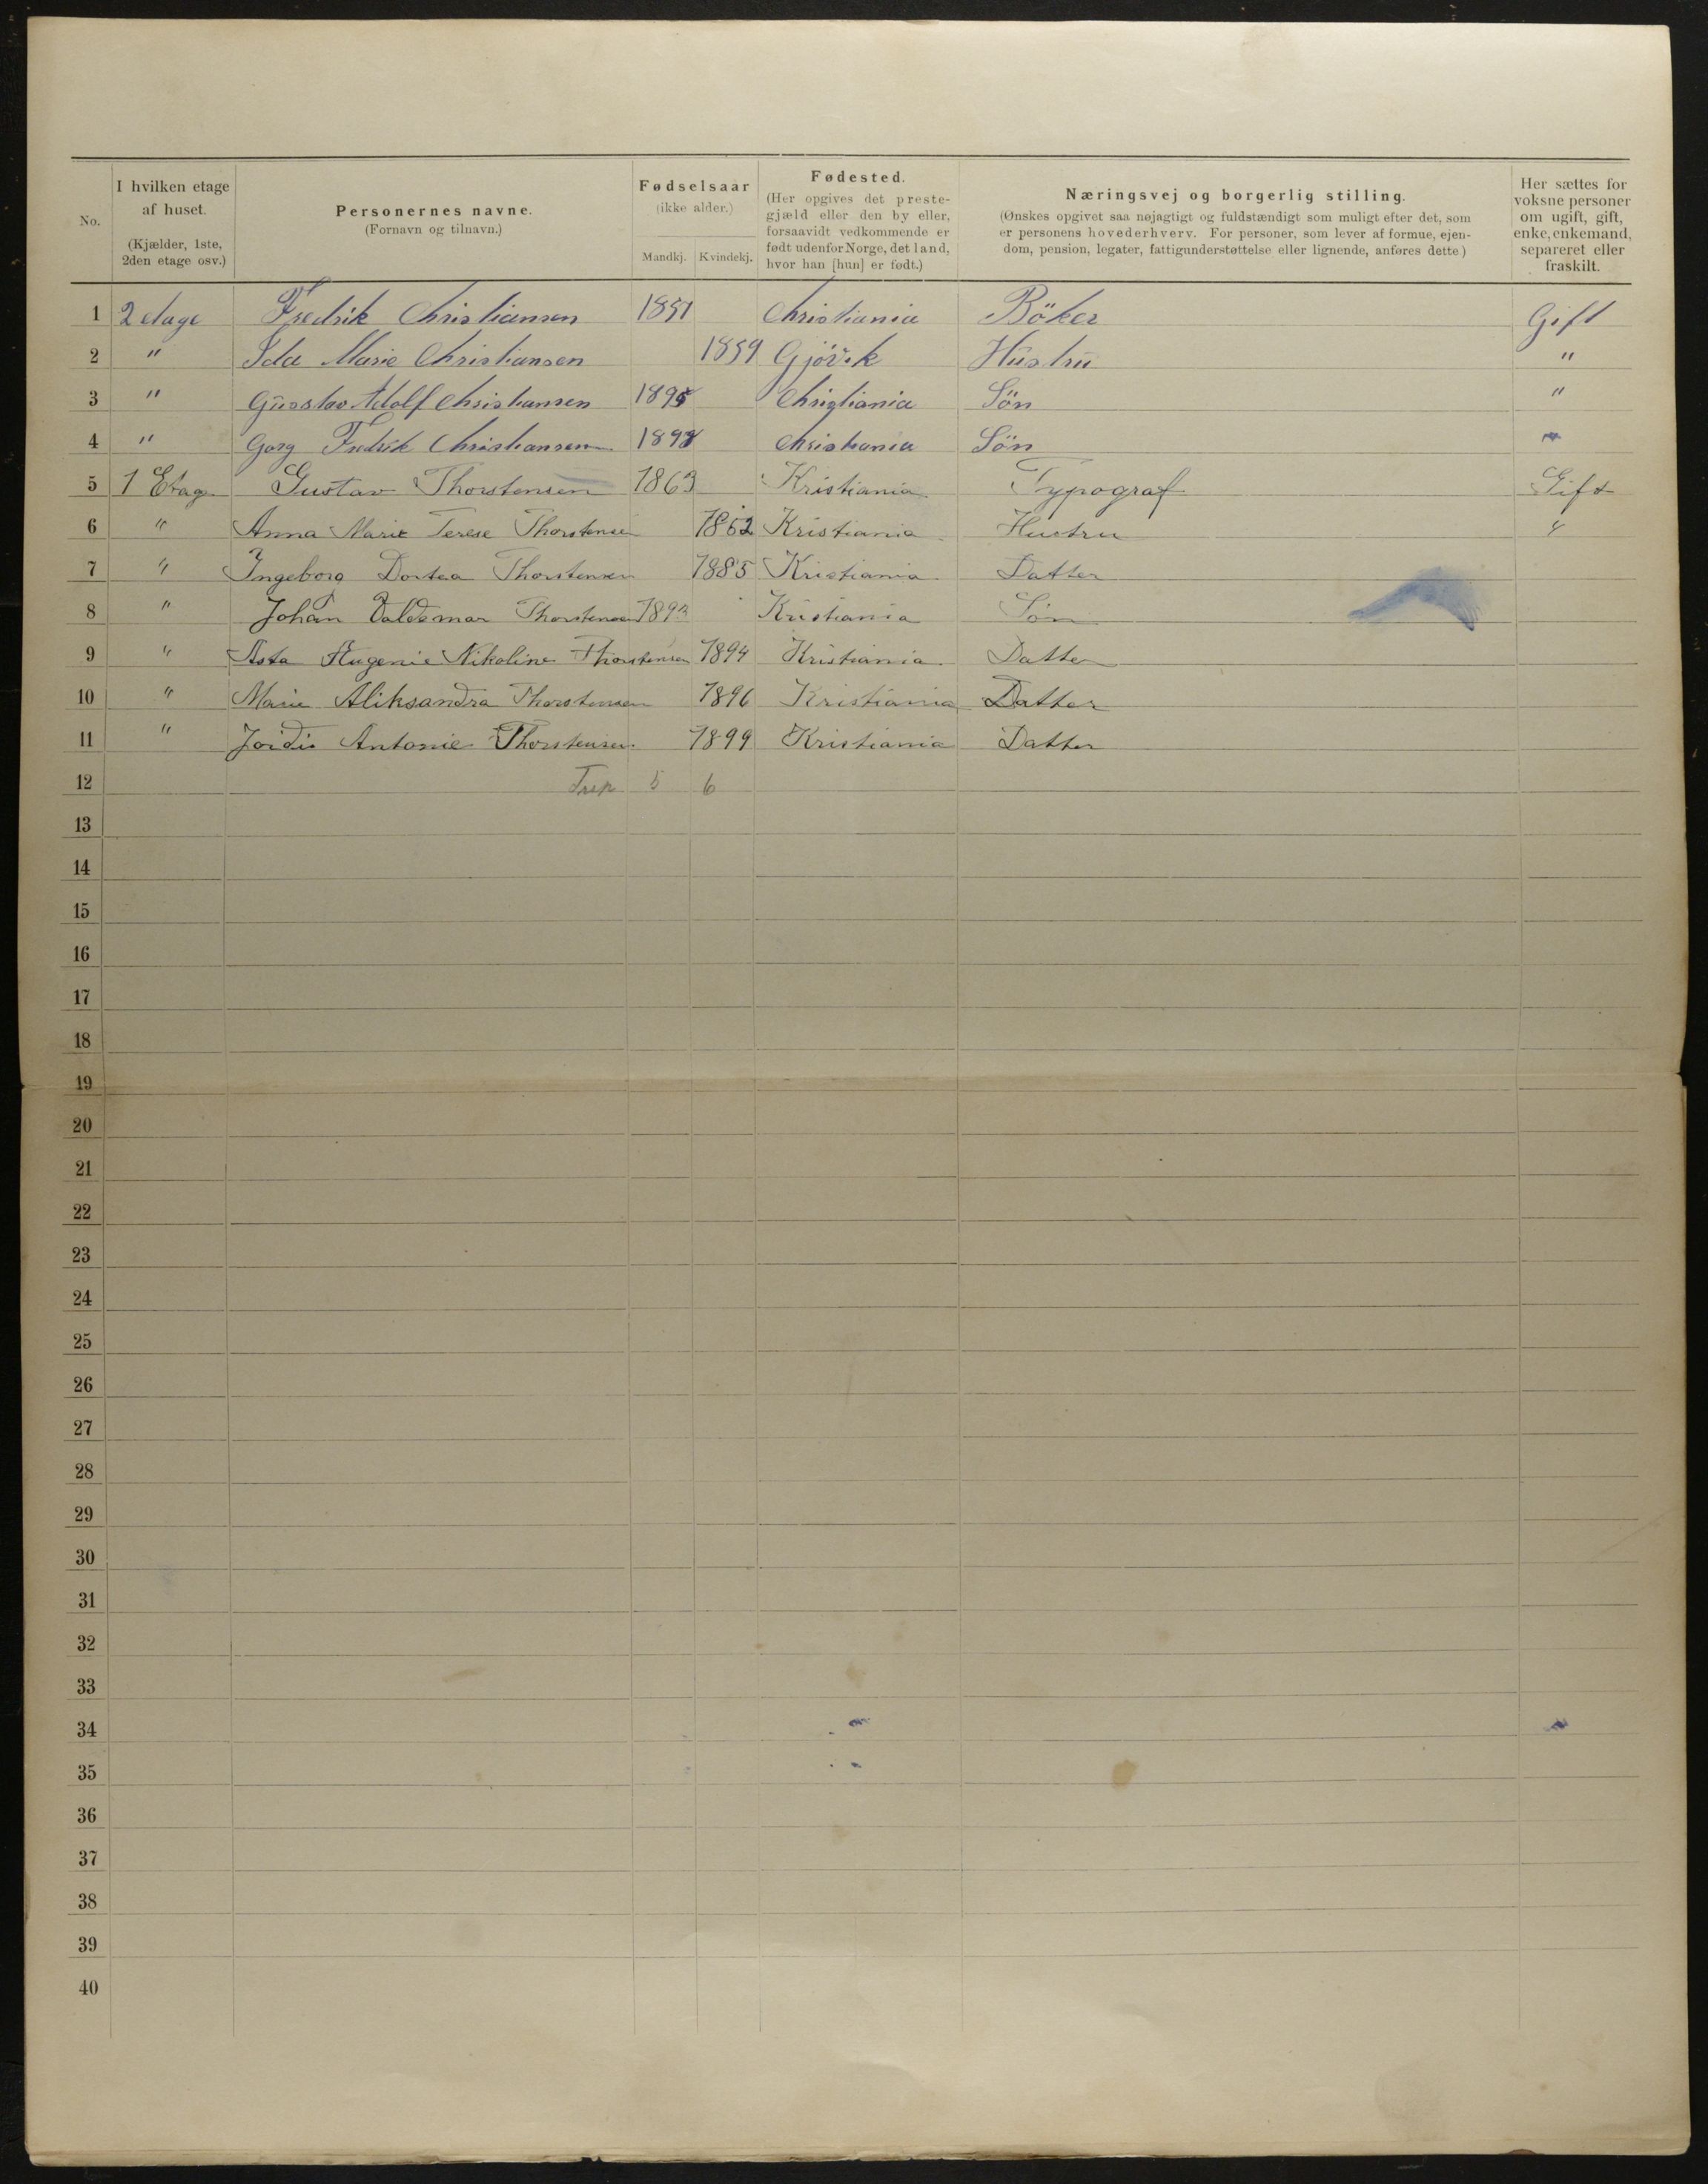 No.
I hvilken etage af huset. (Kjælder, 1ste, 2den etage osv.)
Personernes navne. (Fornavn og tilnavn.)
Fødselsaar (ikke alder.) Mandkj. Kvindekj.
Fødested. (Her opgives det prestegjæld eller den by eller, forsaavidt vedkommende er født udenfor Norge, det land, hvor han [hun] er født.)
Næringsvej og borgerlig stilling. (Ønskes opgivet saa nøjagtigt og fuldstændigt som muligt efter det, som er personens hovederhverv. For personer, som lever af formue, ejendom, pension, legater, fattigunderstøttelse eller lignende, anføres dette)
Her sættes for voksne personer om ugift, gift, enke, enkemand, separeret eller fraskilt.
1 2 etage Fredrik Christiansen 1851 Christiania Böker Gift
2 " Ida Marie Christiansen 1859 Gjövik Hustru "
3 " Gusstav Adolf Christiansen Christiania Sön "
4 " Gorg Fredrik Christiansen Christiania Sön
5 1 Etage Gustav Thorstensen 1863 Kristiania Typograf Gift
6 " Anna Marie Terese Thorstensen Kristiania Hustru "
7 " Ingeborg Dortea Thorstensen 1885 Kristiania Datter
8 " Johan Valdemar Thorstensen Kristiania Søn
9 " Asta Augenie Nikoline Thorstensen 1894 Kristiania Datter
10 " Marie Aliksandra Thorstensen 1896 Kristiania Datter
11 " Jordis Antonie Thorstensen 1899 Kristiania Datter
12 5 6
13
14
15
16
17
18
19
20
21
22
23
24
25
26
27
28
29
30
31
32
33
34
35
36
37
38
39
40